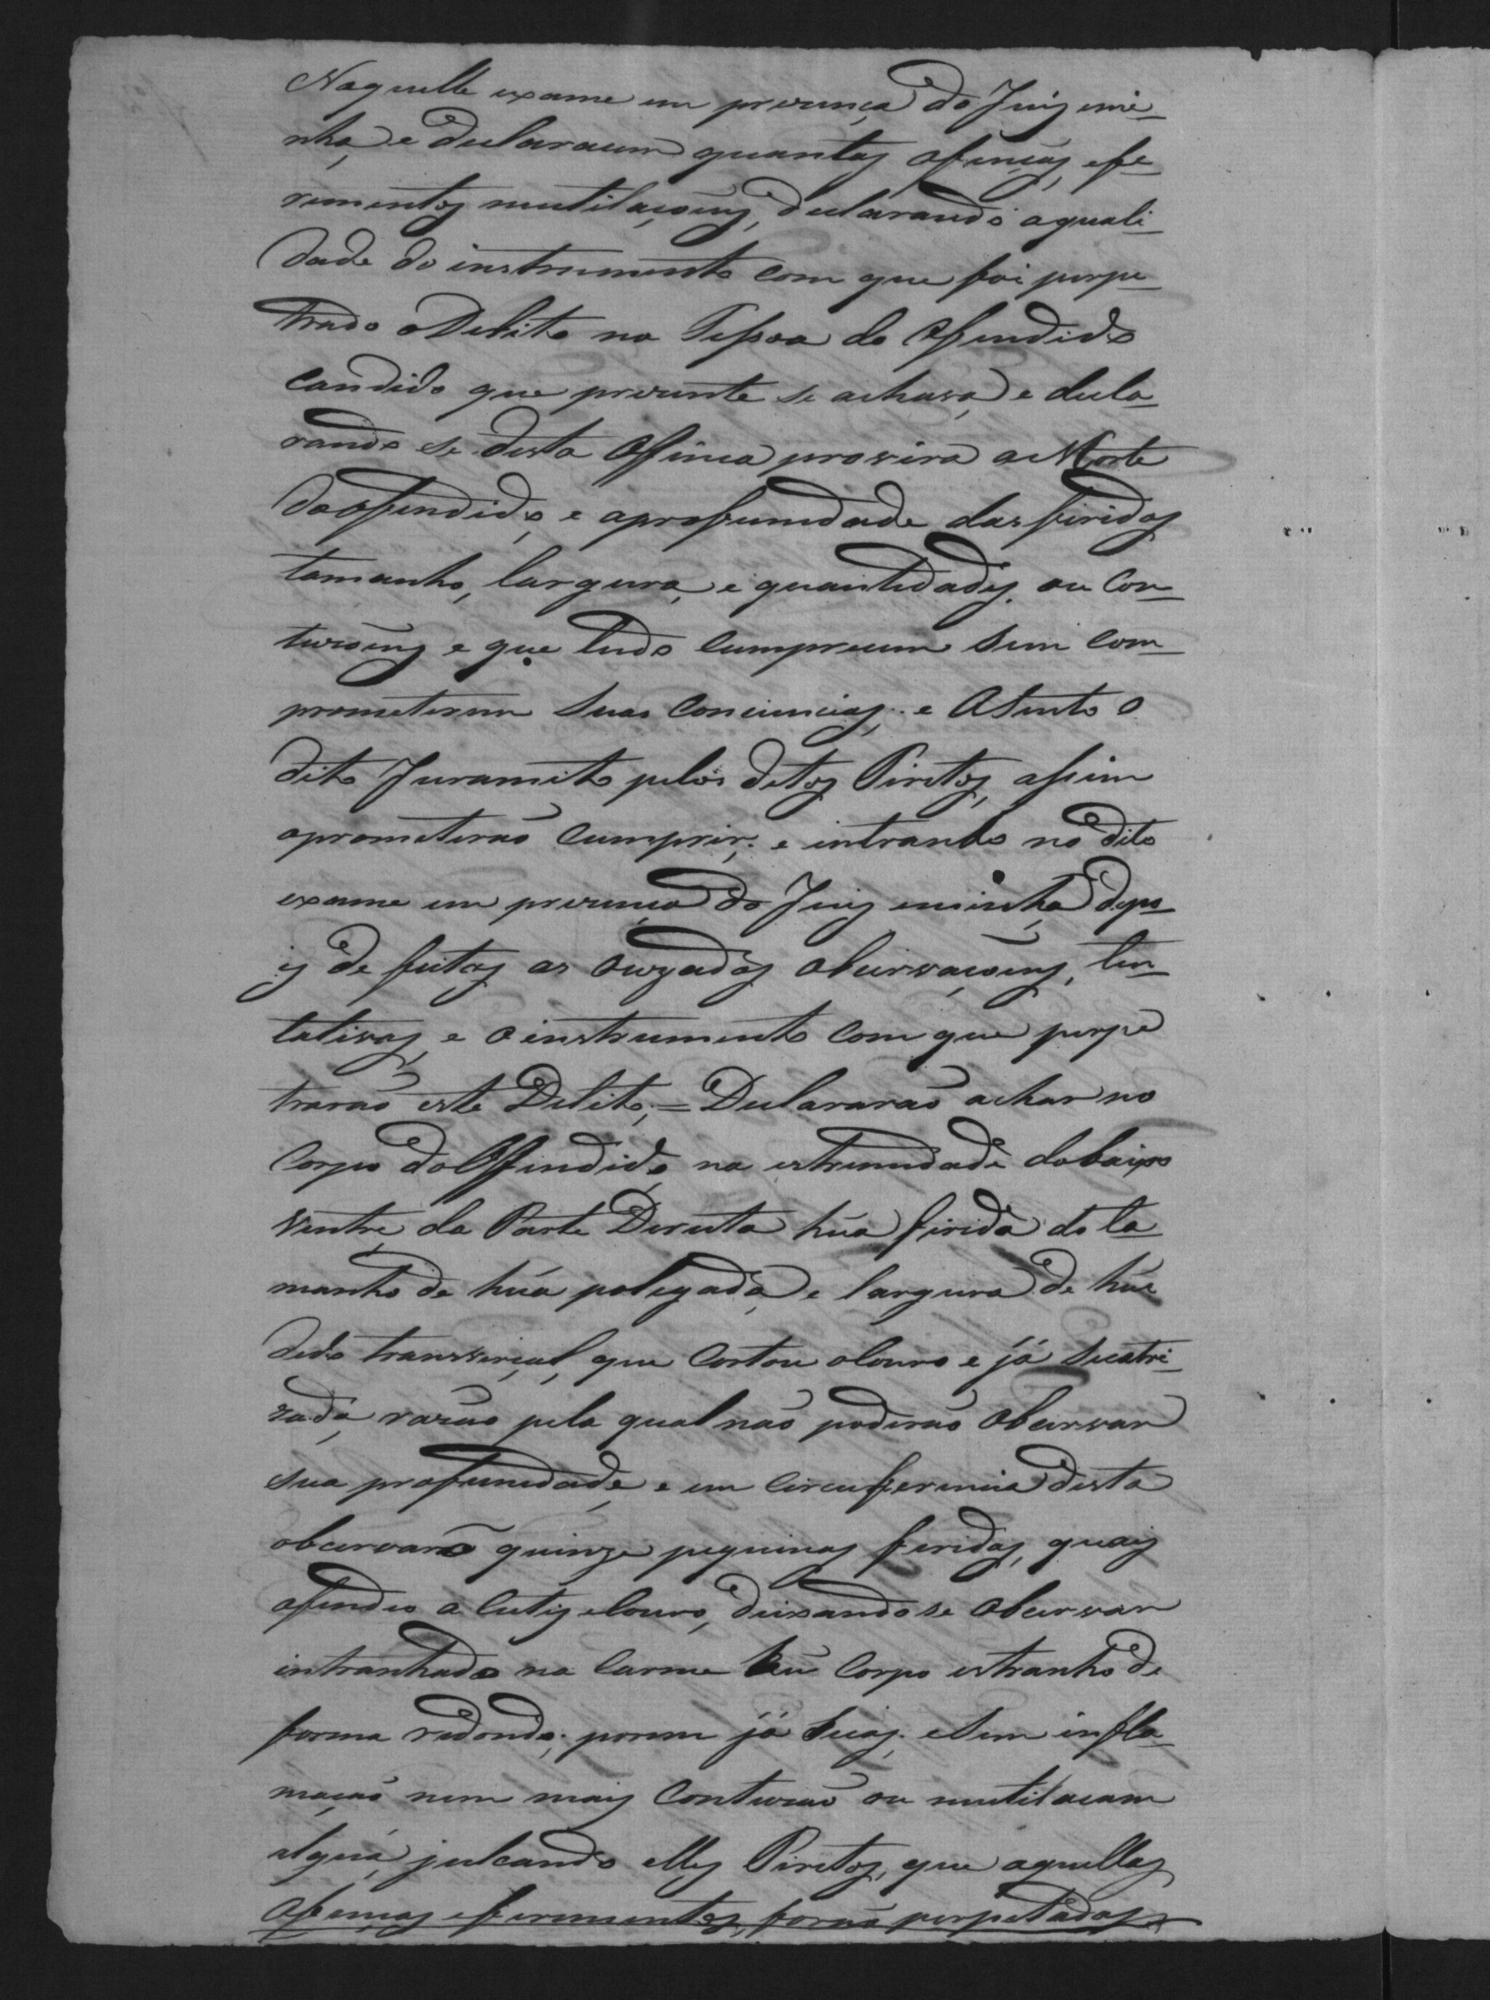 Naquelle exame em prezença do Juiz emi-
nha, e declararem quantas ofenças, efe-
rimentos mutilaçoens, declarando aquali-
dade do instrumento com que foi perpe-
trado o Delito na Pessoa do Ofendido
Candido que prezente se achava, e decla-
rando se desta Ofenca provira a Morte
do Offendido, e aprofundade das firidas
tamanho, largura, e quantidades, ou Con-
tuzoens e que tudo cumpricem sem com-
prometerem suas Conciencias; e Aseito o
dito Juramito pelos ditos Piritos, assim
oprometerão Cumprir; e intrando no dito
exame em prezença do Juiz eminha, depo-
is de feitas as Ouzadas observaçoens, ten-
tativas, e o instrumento com que perpe
trarão este Delito; = Declararão achar no
Corpo do Offendido, na estremidade dobaixo
Ventre, da Parte Dereita húa firida do ta
manho de húa polegada, e largura de húa
dedo transverçal, que Cortou o Couro e já Sicatri-
zada, razão pela qual não poderão Observar
sua profundade, e em Circuferencia desta
observarão quinze piquinas feridas, quais
ofendeo a Cutis eCouro, deixandose Observar
intranhado na Carne hu Corpo estranho de
forma redonda; porem já Sicas, eSem infla-
mação nem mais Contuzão ou mutilacam
alguã, julcando elles Piritos, que aquellas
Ofenças eferimentos, forão perpetadas